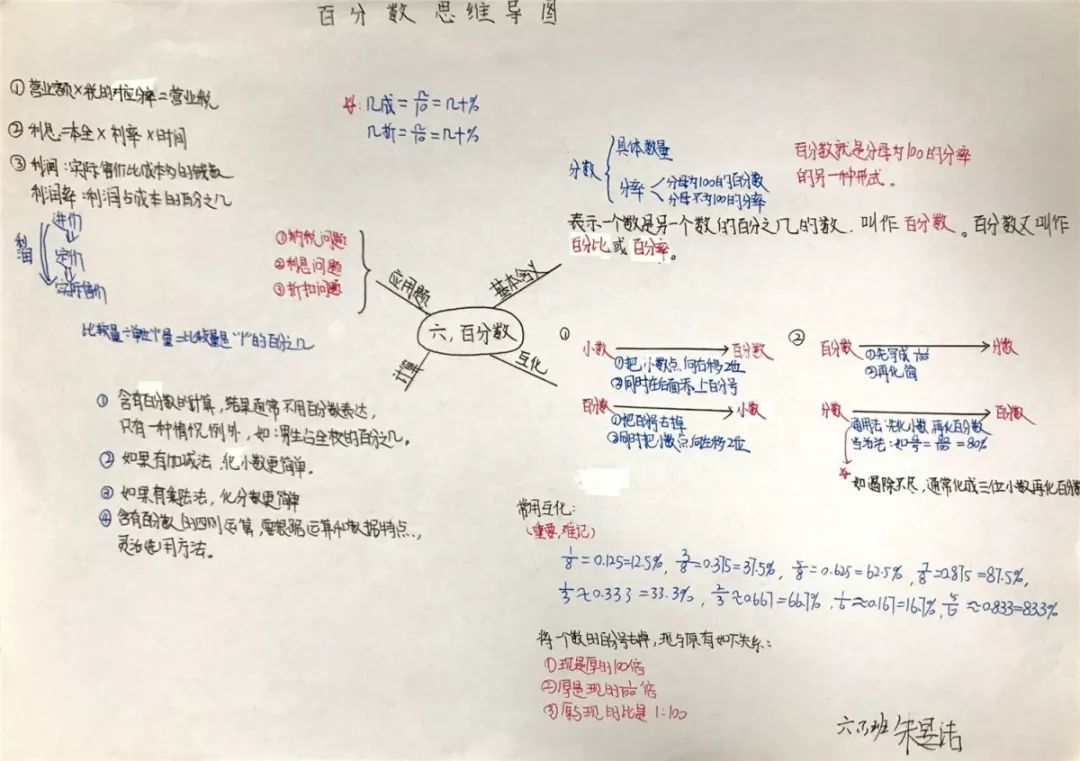 百分数思维导图
①营业额×税的对应分率=营业税
②利息=本金×利率×时间
③利润:实际售价比成本多的钱数
利润率:利润占成本的百分之几
利润
进价
定价
实际售价
①纳税问题
②利息问题
③折扣问题
比较量÷单位"1"量=比较量是"1"的百分之几
☆:几成=几/10=几十%
几折=几/10=几十%
分数
具体数量
分率
分母为100的百分数
分母不为100的分率
百分数就是分母为100的分率
的另一种形式。
表示一个数是另一个数的百分之几的数,叫作百分数。百分数又叫作
百分比或百分率。
应用题
基本含义
六,百分数
计算
互化
①含有百分数的计算,结果通常不用百分数表达,
只有一种情况例外,如:男生占全校的百分之几。
②如果有加减法,化小数更简单。
③如果有乘除法,化分数更简单
④含有百分数的四则运算,要根据运算和数据特点,
灵活使用方法。
①
小数
百分数
①把小数点向右移2位
②同时在后面添上百分号
百分数
小数
①把百分号去掉
②同时把小数点向左移2位
②
百分数
分数
①先写成
②再化简
分数
百分数
通用法:先化小数,再化百分数
=80%
☆
如遇除不尽,通常化成三位小数再化百分数
常用互化:
(重要,难记)
1/8=0.125=12.5%, 3/8=0.375=37.5%, 5/8=0.625=62.5%, 7/8=0.875=87.5%,
1/3≈0.333=33.3%, 2/3≈0.667=66.7%, 1/6≈0.167=16.7%, 5/6≈0.833=83.3%
将一个数的百分号去掉,现与原有如下关系:
①现是原的100倍
②原是现的1/100倍
③原与现的比是1:100